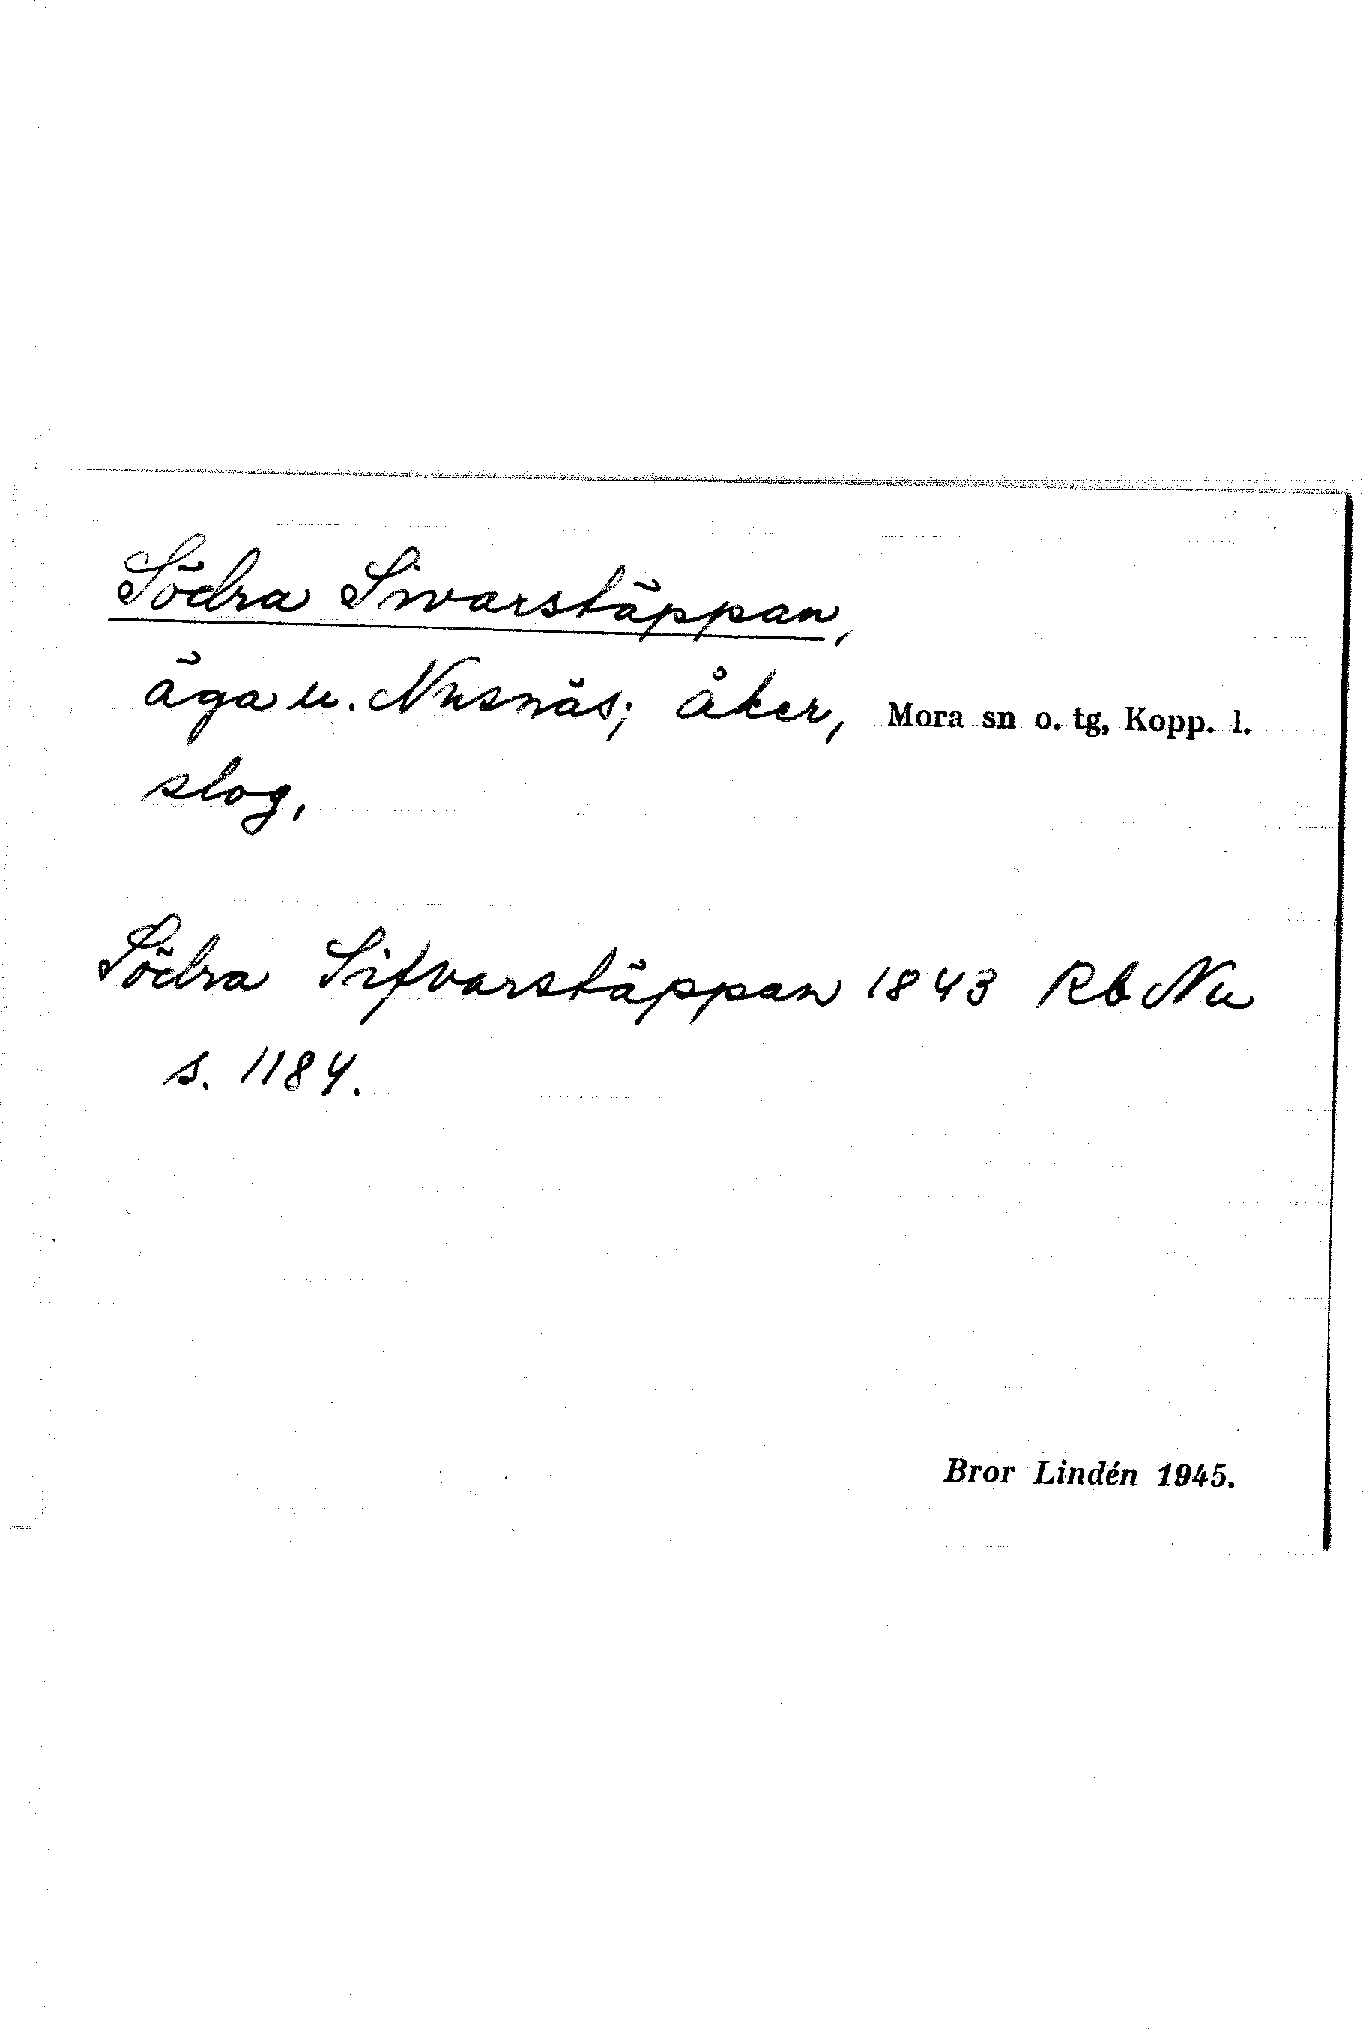 Södra Sivarstäppan,
äga u. Nusnäs; åker, Mora sn o. tg, Kopp. l.
slog,
Södra Sifvarstäppan 1843 Rb Nu
s. 1184.
Bror Lindén 1945.